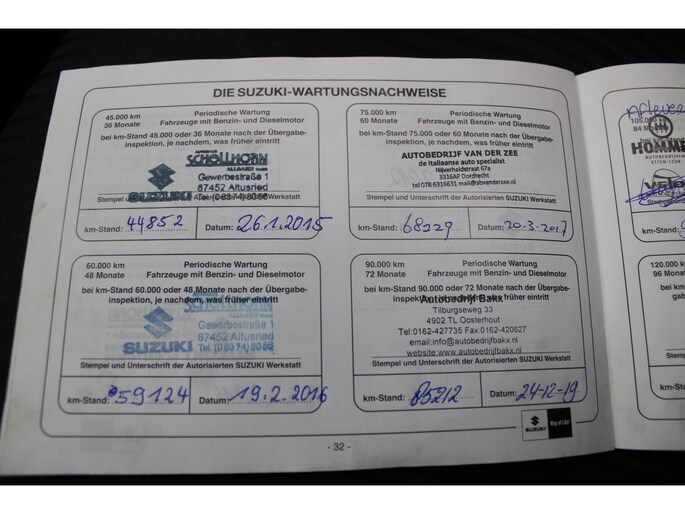 DIE SUZUKI-WARTUNGSNACHWEISE
45.000 km
36 Monate
Periodische Wartung
Fahrzeuge mit Benzin- und Dieselmotor
bei km-Stand 45.000 oder 36 Monate nach der Übergabe-
inspektion, je nachdem, was früher eintritt
SCHÖLLHORN
Gewerbestraße 1
87452 Altusried
Tel. (08374) 8066
SUZUKI
Stempel und Unterschrift der Autorisierten SUZUKI Werkstatt
km-Stand: 44852
Datum: 26.1.2015
75.000 km
60 Monate
Periodische Wartung
Fahrzeuge mit Benzin- und Dieselmotor
bei km-Stand 75.000 oder 60 Monate nach der Übergabe-
inspektion, je nachdem, was früher eintritt
AUTOBEDRIJF VAN DER ZEE
de Italiaanse auto specialist
Nijverheidstraat 67a
3316AP Dordrecht
tel 078 6316631 mail@abvanderzee.nl
Stempel und Unterschrift der Autorisierten SUZUKI Werkstatt
km-Stand: 68229
Datum: 20-3-2017
60.000 km
48 Monate
Periodische Wartung
Fahrzeuge mit Benzin- und Dieselmotor
bei km-Stand 60.000 oder 48 Monate nach der Übergabe-
inspektion, je nachdem, was früher eintritt
SCHÖLLHORN
Gewerbestraße 1
87452 Altusried
Tel. (08374) 8066
SUZUKI
Stempel und Unterschrift der Autorisierten SUZUKI Werkstatt
km-Stand: 59124
Datum: 19.2.2016
90.000 km
72 Monate
Periodische Wartung
Fahrzeuge mit Benzin- und Dieselmotor
bei km-Stand 90.000 oder 72 Monate nach der Übergabe-
inspektion, je nachdem, was früher eintritt
Autobedrijf Bakx
Tilburgseweg 33
4902 TL Oosterhout
Tel:0162-427735 Fax:0162-420627
email:info@autobedrijfbakx.nl
website:www.autobedrijfbakx.nl
Stempel und Unterschrift der Autorisierten SUZUKI Werkstatt
km-Stand: 85212
Datum: 24-12-19
SUZUKI
Way of Life!
- 32 -
105.000
84 Mona
HOMME
AUTOBEDRIJVEN
ETTEN-LEUR
Stempel
km-Stand:
120.000
96 Monate
bei km
Stempel
km-Stand